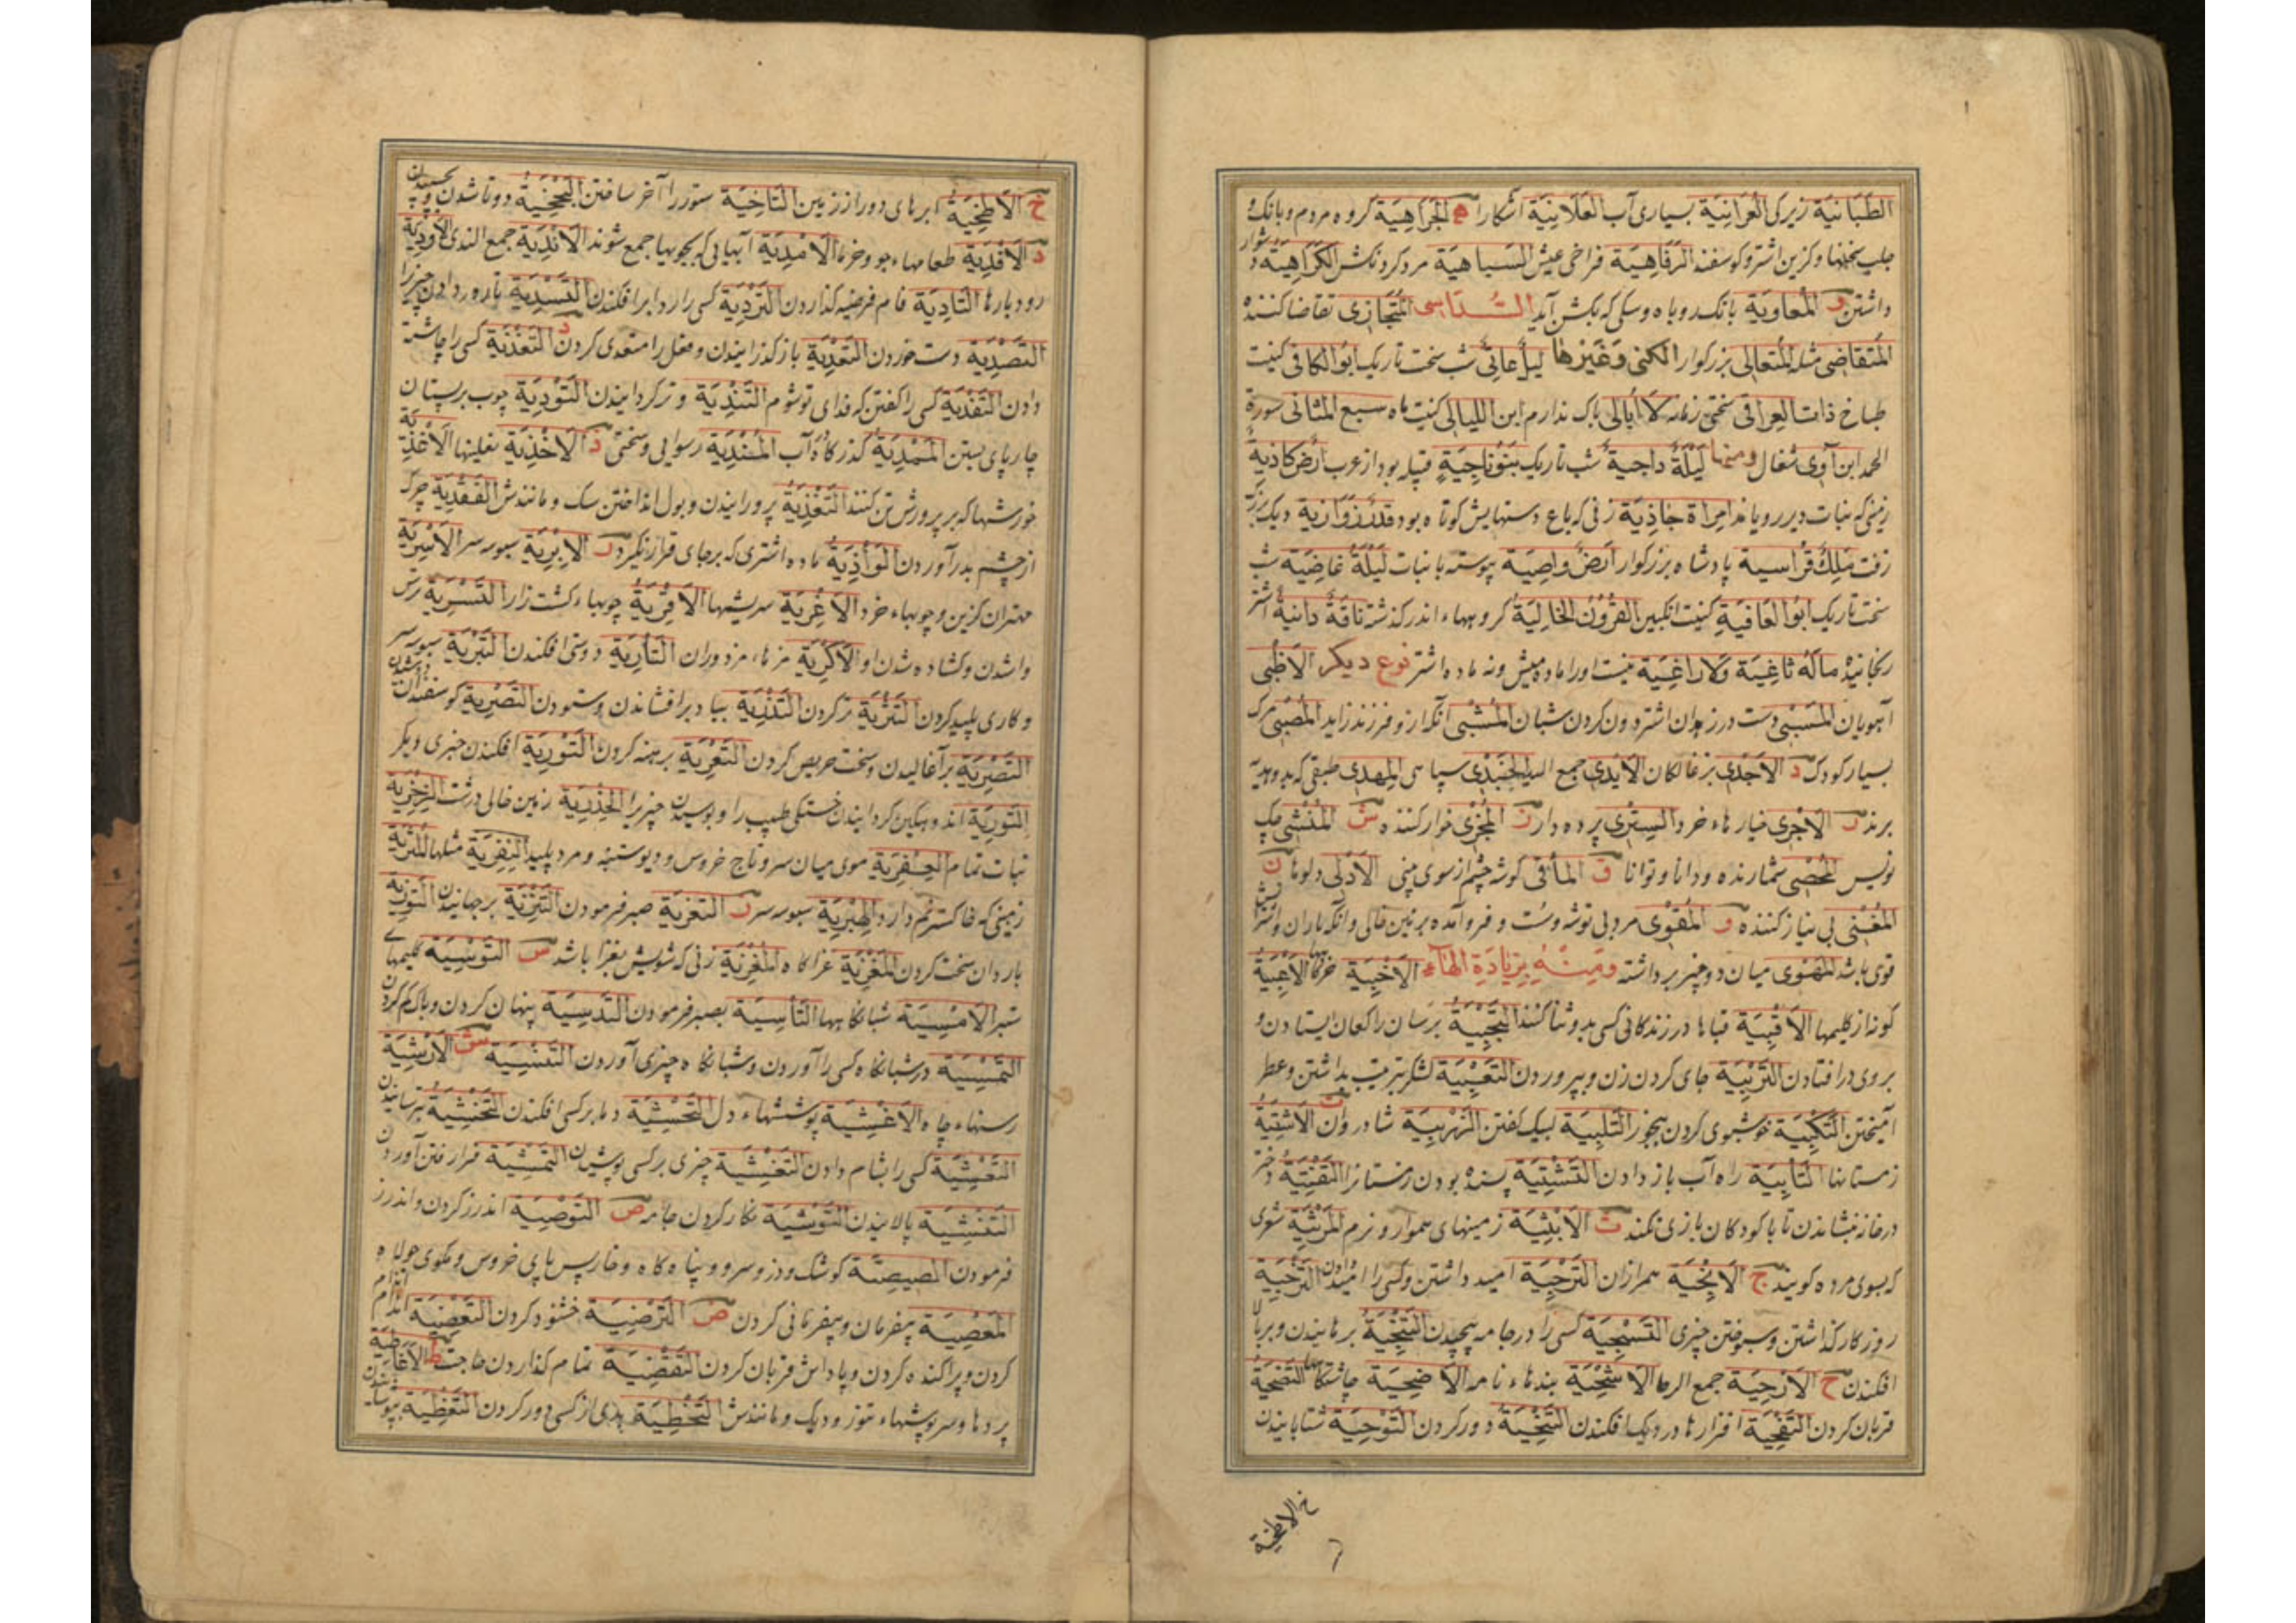 الطَّبَانِيَة زیرکی الغَرَانِيَة بسیاری آب العَلَانِيَة آشکارا ه الجَرَاهِيَة کروه مردم و بانک و
جلب سخنها و کزین اشتر و کوسفند الرَّفَاهِيَة فراخی عیش السَبَاهِيَة مرد کردنکش الكَرَاهِيَة دشوار
داشتن و المُعَاوِيَة بانک روباه و سکی که بکشن آید السُّدَاسی المُتَجَازِی تقاضا کننده
المُتَقَاضِی مثله المُتَعَالِی بزرکوار الکنی وَغَيْرهَا لیل عاتی شب سخت تاریک ابُو الکافی کنیت
طباخ ذات العراقی سختی زمانه لا اُبَالِی باک ندارم ابن اللیالی کنیت ماه سبع المثانی سورة
الحمد ابن آوی شغال ومنها لَيْلَةٌ دَاجِيةٌ شب تاریک بَنُو نَاجِيَةٍ قبیله بود از عرب اَرْضٌ كَادِيَةٌ
زمینی که نبات دیر رویاند امراة جَاذِيَة زنی که باع دستهایش کوتاه بود قدر زُوَازِيَة دیک بزرک
زفت مَلِكٌ قُرَاسِية پادشاه بزرکوار اَرْضٌ وَاصِيَة پیوسته با نبات لَيْلَةٌ غَاضِيَة شب
سخت تاریک ابُو العَافِيَةِ کنیت انکبین القُرُونُ الخَالِيَةُ کروهها اندر کذشته نَاقَةٌ دَانِيةٌ اشتر
مالَهُ ثاغِيَة وَلا رَاغِيَة نیست او را ماده میش و نه ماده اشتر نوع دیکر الاَظْبِی
آهویان المُسَبِّی دست در زهدان اشتر درون کردن شبان المُشْبِی آنکه ازو فرزند زاید المُصْبِی مرک
بسیار کودک د الاَجْدِی بزغالکان الاَيْدِی جمع الید الجُنْدِی سپاهی المِهْدِی طبقی که بدو هدیه
برند ر الاَجْرِی خیارهاء خرد السِتْرِی پرده دار ز المُخْزِی خوار کننده ش المُنْشِی چک
نویس المُحْصِی شمارنده و دانا و توانا ق المأقی کوشه چشم از سوی بینی الاَدْلِی دلوها ن
المُغْنِی بی نیاز کننده و المُقْوِی مرد بی توشه و سُست و فرو آمده بزمین خالی و آنکه باران و اشترش
قوی باشد المَهْنُوی میان دو چیز برداشته وَمِنْهُ بِزِيَادَةِ الهَاء الاَخْبِيَة خرکاهها الاَعْبِيَة
کونه از کلیمها الاَقْبِيَة قباها در زندکانی کسی بدو ثنا کنند التَّجْبِيَةُ برسان راکعان ایستادن و
بروی در افتادن التَّرْبِيَة جای کردن زن و بپروردن التَّعْبِيَة لشکر بترتیب بداشتن و عطر
آمیختن التَّكْبِيَة خوشبوی کردن ببخور التَّلْبِيَة لبیک کفتن الزَّرْبِيَة شادروان ت الاَشْتِيَةُ
زمستانها التَّأتِيَة راه آب باز دادن التَّشْتِيَة پسنده بودن زمستانرا التَّفْتِيَةُ دختر
در خانه بنشاندن تا با کودکان بازی نکند ث الاَبْثِيَة زمینهای هموار و نرم المَرْثِيَة شعری
که بسوی مرده کویند ج الاَنْجِيَة همرازان التَّرْجِيَة امید داشتن و کسی را امید دادن التَّزْجِيَة
روزکار کذاشتن و سپوختن چیزی التَّسْجِيَة کسی را در جامه پیچیدن التَّنْجِيَةُ برهانیدن و بر بالا
افکندن ح الاَرْحِيَة جمع الرحا الاَسْحِيَة بندهاء نامه الاُضْحِيَة چاشتکاهها التَّضْحِيَةُ
قربان کردن التَّقْحِيَة افزارها در دیک افکندن التَّنْحِيَة دور کردن التَّوْحِيَة شتابانیدن
خ الاطخية
خ الاَطْخِيَةُ ابرهای دور از زمین التَّاخِيَة ستور را آخر ساختن التَّجْخِيَةُ دوتا شدن و بچسپیدن
د الاَفْدِيَة طعامهاء جو و خرما الاَمْدِيَة آبهایی که بجویها جمع شوند الاَنْدِيَة جمع الندی الاَوْدِيَة
رودبارها التَّادِيَة فام فریضه کذاردن التَّرْدِيَة کسی را ردا برافکندن التَّسْدِيَة تاره وردادن چیز را
التَّصْدِيَة دست خوردن التَّعْدِيَة باز کذرانیدن و فعل را متعدی کردن د التَّغْدِيَة کسی را چاشته
دادن التَّفْدِيَة کسی را کفتن که فدای تو شوم التَّنْدِيَة و تر کردانیدن التَّوْدِيَة چوب بر پستان
چارپای بستن المَمْدِيَة کذرکاه آب المُنْدِيَة رسوایی و سختی ذ الاَحْذِيَة نعلینها الاَغْذِيَة
خورشها که بر پرورش تن کنند التَّغْذِيَةُ پرورانیدن و بول انداختن سک و مانندش القَفْذِيَة چرک
از چشم بدر آوردن الوَاذِيَةُ ماده اشتری که بر جای قرار نکیرد ر الاِبْرِيَة سبوسه سر الاَسْرِيَة
مهتران کزین و جویهاء خرد الاَغْرِيَة سریشها الاَقْرِيَةُ جویهاء کشت زار التَّسْرِيَة ترس
واشدن و کشاده شدن او الاَكْرِيَة مزهاء مزدوران التَّأرِيَة دوستی افکندن التَّبْرِيَة سبوسه سر
و کاری پلید کردن التَّثْرِيَة تر کردن التَّذْرِيَة بباد برافشاندن و ستودن التَّصْرِيَة کوسفند را ندوشیدن
التَّضْرِيَة برآغالیدن و سخت حریص کردن التَّعْرِيَة برهنه کردن التَّوْرِيَة افکندن خبری دیکر
التَّورِيَة اندوهکین کردانیدن خستکی طبیب را و پوسیدن چیزیرا الحِذْرِيَة زمین خالی درشت الزِّخْرِيَة
نبات تمام العِفْرِيَة موی میان سر و تاج خروس و دیو ستنبه و مرد پلید النِّفْرِيَة مثلها المُثْرِيَة
زمینی که خاکستر نم دارد الهِبْرِيَة سبوسه سر ز التَّعْزِيَة صبر فرمودن التَّنْزِيَة برجهانیدن التَّوْزِيَة
بار دان سخت کردن المَغْزِيَة غزاکاه المُغْزِيَة زنی که شویش بغزا باشد س التَّوْسِيَة کلیمهای
ستبر الاُمْسِيَة شبانکاهها التَّأسِيَة بصبر فرمودن التَّدْسِيَة پنهان کردن و باک کم کردن
التَّمْسِيَة در شبانکاه کسی را آوردن و شبانکاه چیزی آوردن التَّنْسِيَة ش الاَرْشِيَة
رسنهاء چاه الاَغْشِيَة پوششهاء دل التَّحْشِيَة دما بر کسی افکندن التَّخْشِيَة بترسانیدن
التَّعْشِيَة کسی را بشام دادن التَّغْشِيَة چیزی بر کسی پوشیدن التَّمْشِيَة فرا رفتن آوردن
التَّنْشِيَة پالانیدن التَّوْشِيَة نکار کردن جامه ص التَّوْصِيَة اندرز کردن و اندرز
فرمودن الصِيصِيَة کوشک و دز و سرو و پناه کاه و خار پس پای خروس و مکوی جولاه
المَعْصِيَة بیفرمان و بیفرمانی کردن ض التَّرْضِيَة خشنود کردن التَّعْضِيَة اندام اندام
کردن و پراکنده کردن و پاداش قربان کردن التَّقْضِيَة تمام کذاردن حاجت ط الاَغْطِيَة
پردها و سرپوشهاء تنور و دیک و مانندش التَّخْطِيَة بدی از کسی دور کردن التَّغْطِيَة بپوشانیدن